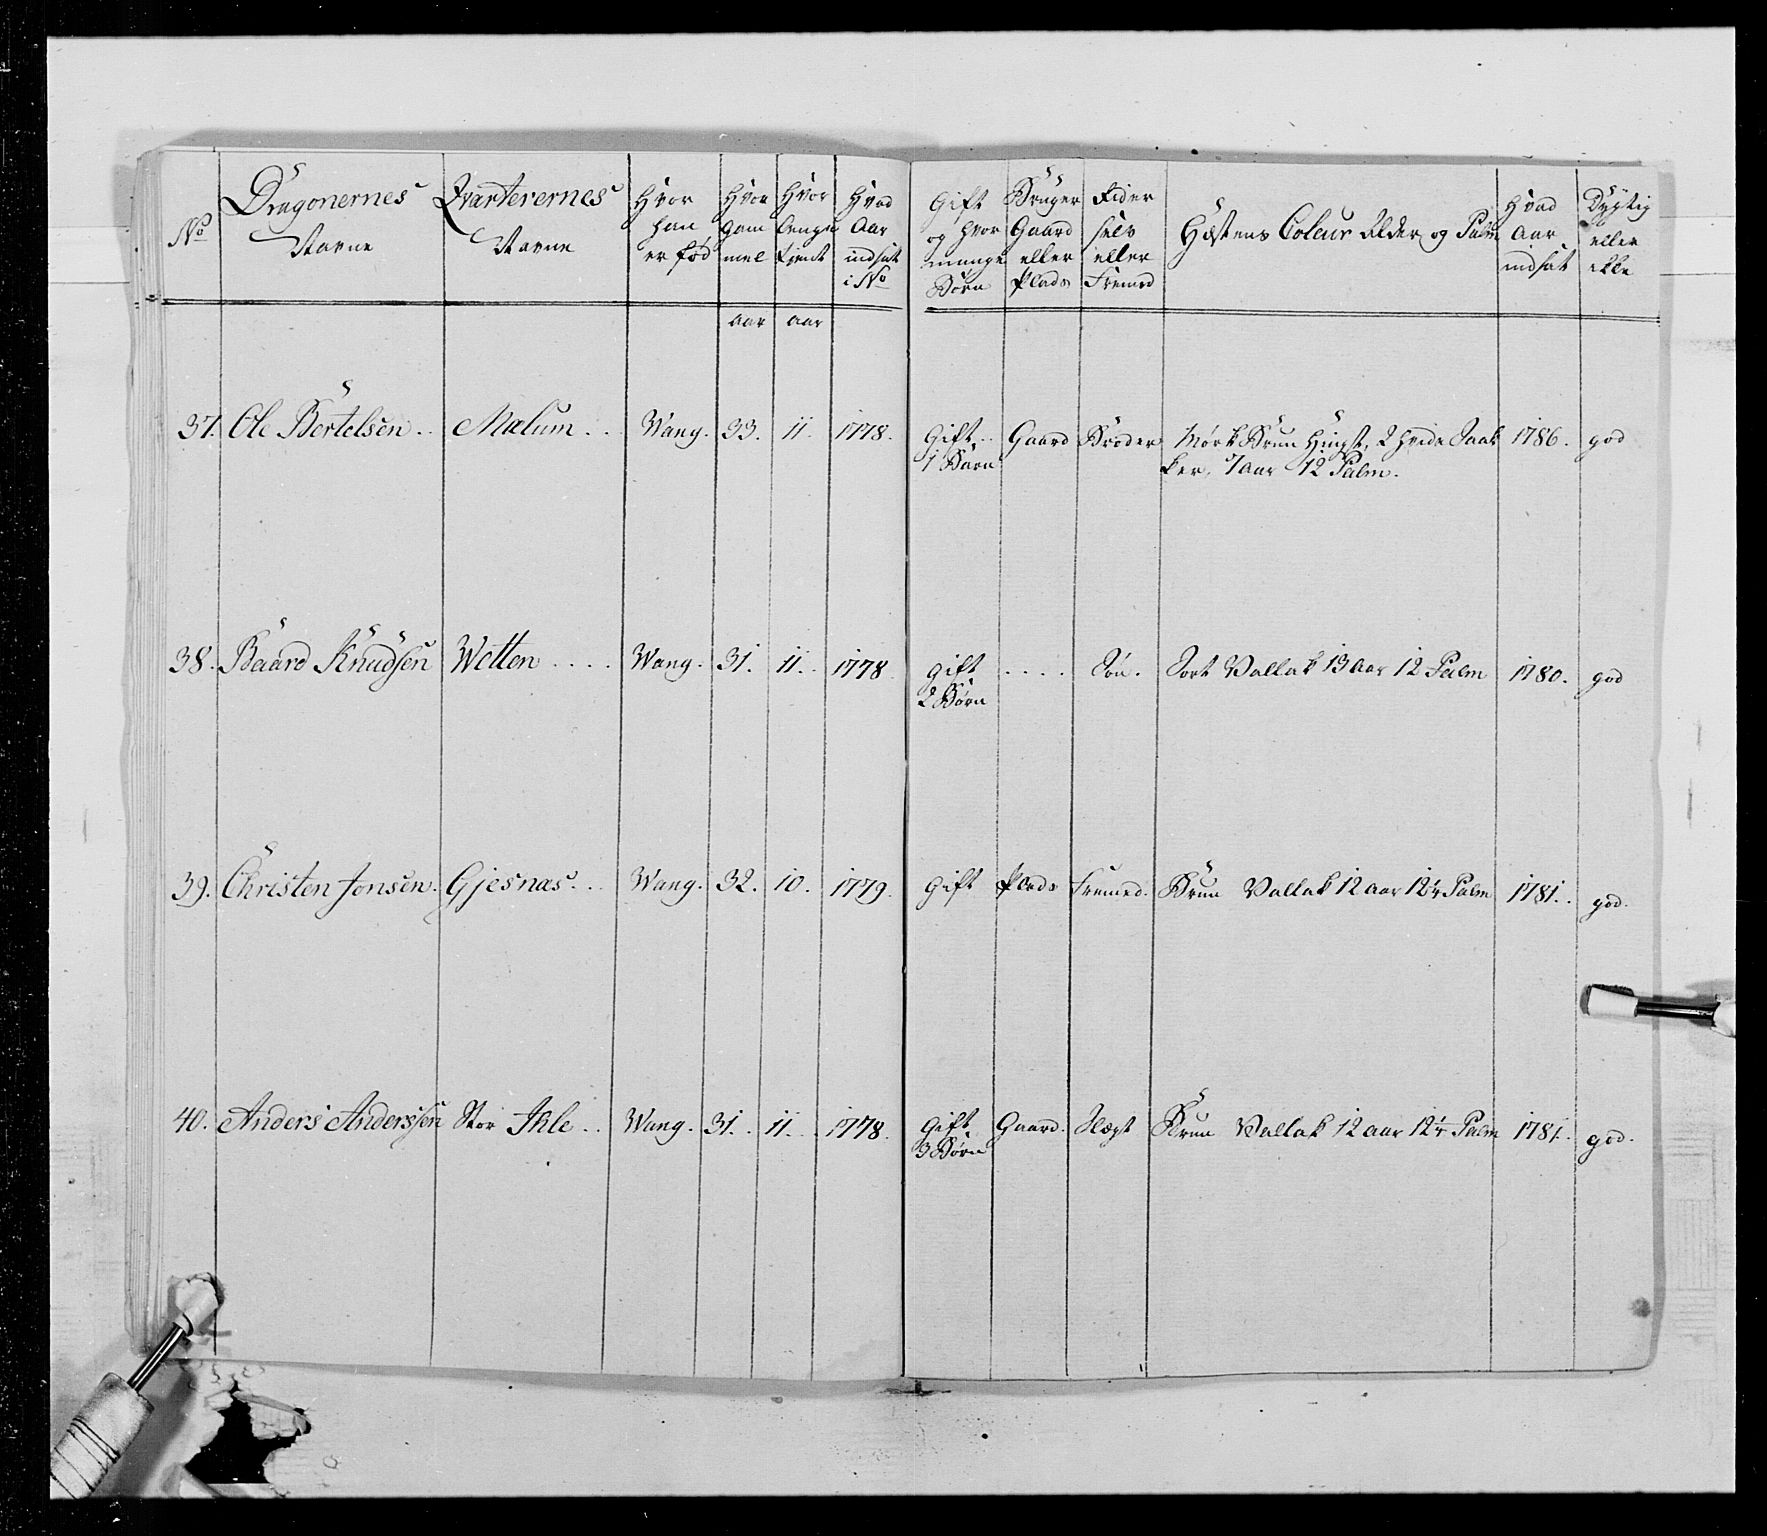 No | Dragonernes Navne | Qvarterernes Navne | Hvor han er fød | Hvor Gammel | Hvor Lenge tient | Hvad Aar indsat i No | Gift og hvor mange Børn | Bruger Gaard eller Plads | Rider selv eller Fremed | Hæstens Coleur Alder og Palm | Hvad Aar indsat | Dygtig eller ikke
aar | aar
37. | Ole Bertelsen.. | Mælum... | Wang. | 33. | 11. | 1778. | Gift.. | Gaard | Broder | Mørk Brun Hingst, 2 hvide Baak | 1786. | god
1 Barn | ker, 7 aar 12 Palm.
38. | Baard Knudsen | Wetten.... | Wang. | 31. | 11.. | 1778 | Gift | .... | Søn. | Sort Vallak 13 aar 12 Palm | 1780. | god
2 Børn
39. | Christen Jonsen. | Gjesnæs... | Wang. | 32. | 10. | 1779. | Gift | Plads | Fremed. | Brun Vallak 12 aar 12¼ Palm | 1781.. | god.
40. | Anders Anderssen | Stor Ihle.. | Wang. | 31. | 11.. | 1778. | Gift | Gaard. | Slægt | Brun Vallak 12 aar 12¼ Palm | 1781. | god.
3 Børn